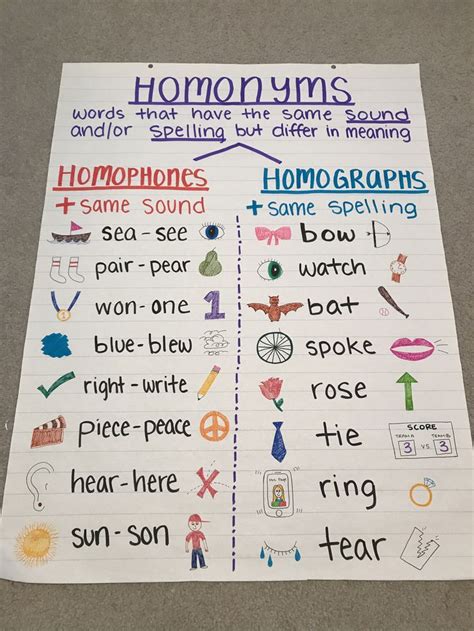 HOMONYMS
words that have the same sound
and/or spelling but differ in meaning
HOMOPHONES
+ same sound
sea - see
pair - pear
won - one 1
blue - blew
right - write
piece - peace
hear - here
sun - son
HOMOGRAPHS
+ same spelling
bow
watch
bat
spoke
rose
tie
SCORE
TEAM A TEAM B
3 VS. 3
ring
tear